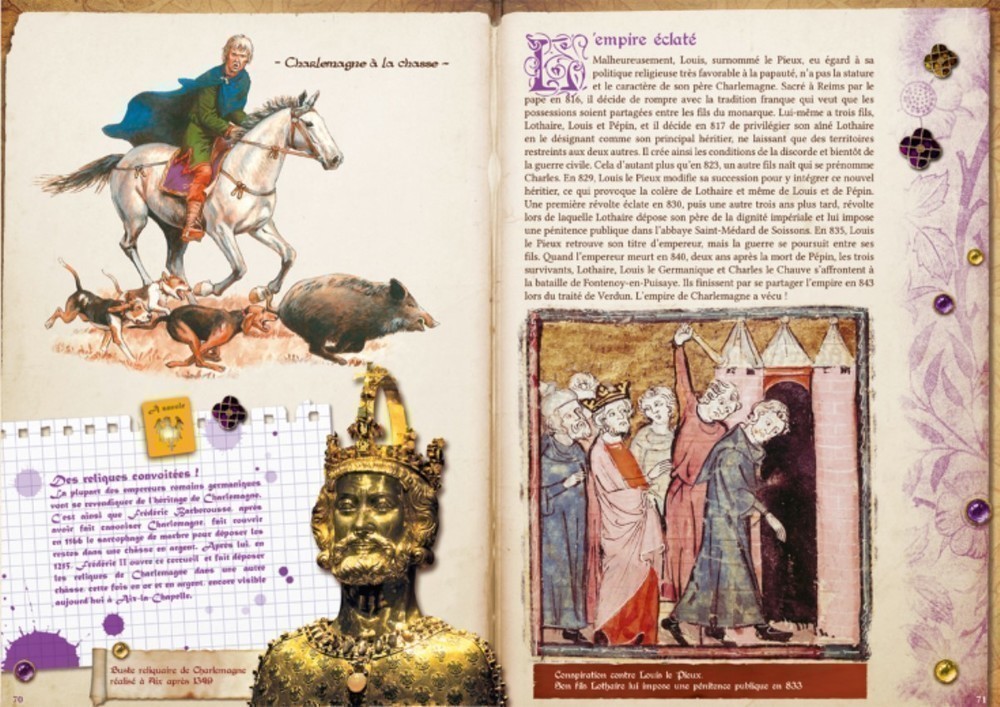 - Charlemagne à la chasse -
A savoir
Des reliques convoitées !
La plupart des empereurs romains germaniques
vont se revendiquer de l'héritage de Charlemagne.
C'est ainsi que Frédéric Barberousse, après
avoir fait canoniser Charlemagne, fait rouvrir
en 1166 le sarcophage de marbre pour déposer les
restes dans une châsse en argent. Après lui, en
1215, Frédéric II ouvre ce cercueil et fait déposer
les reliques de Charlemagne dans une autre
châsse, cette fois en or et en argent, encore visible
aujourd'hui à Aix-la-Chapelle.
Buste reliquaire de Charlemagne
réalisé à Aix après 1349
70
L'empire éclaté
Malheureusement, Louis, surnommé le Pieux, eu égard à sa
politique religieuse très favorable à la papauté, n'a pas la stature
et le caractère de son père Charlemagne. Sacré à Reims par le
pape en 816, il décide de rompre avec la tradition franque qui veut que les
possessions soient partagées entre les fils du monarque. Lui-même a trois fils,
Lothaire, Louis et Pépin, et il décide en 817 de privilégier son aîné Lothaire
en le désignant comme son principal héritier, ne laissant que des territoires
restreints aux deux autres. Il crée ainsi les conditions de la discorde et bientôt de
la guerre civile. Cela d'autant plus qu'en 823, un autre fils naît qui se prénomme
Charles. En 829, Louis le Pieux modifie sa succession pour y intégrer ce nouvel
héritier, ce qui provoque la colère de Lothaire et même de Louis et de Pépin.
Une première révolte éclate en 830, puis une autre trois ans plus tard, révolte
lors de laquelle Lothaire dépose son père de la dignité impériale et lui impose
une pénitence publique dans l'abbaye Saint-Médard de Soissons. En 835, Louis
le Pieux retrouve son titre d'empereur, mais la guerre se poursuit entre ses
fils. Quand l'empereur meurt en 840, deux ans après la mort de Pépin, les trois
survivants, Lothaire, Louis le Germanique et Charles le Chauve s'affrontent à
la bataille de Fontenoy-en-Puisaye. Ils finissent par se partager l'empire en 843
lors du traité de Verdun. L'empire de Charlemagne a vécu !
Conspiration contre Louis le Pieux.
Son fils Lothaire lui impose une pénitence publique en 833
71